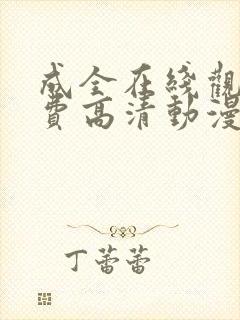 成全在綫觀
費高清動漫
丁蕾蕾